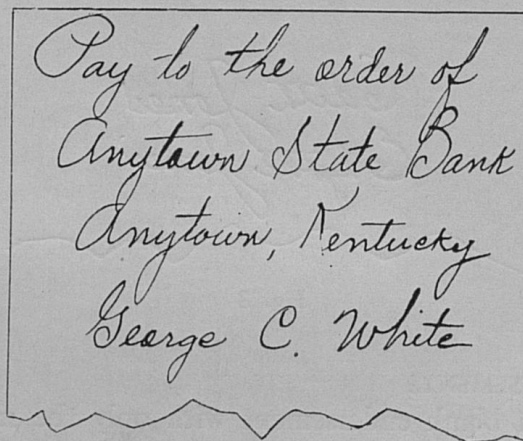 Pay to the order of
Anytown State Bank
Anytown, Kentucky
George C. White